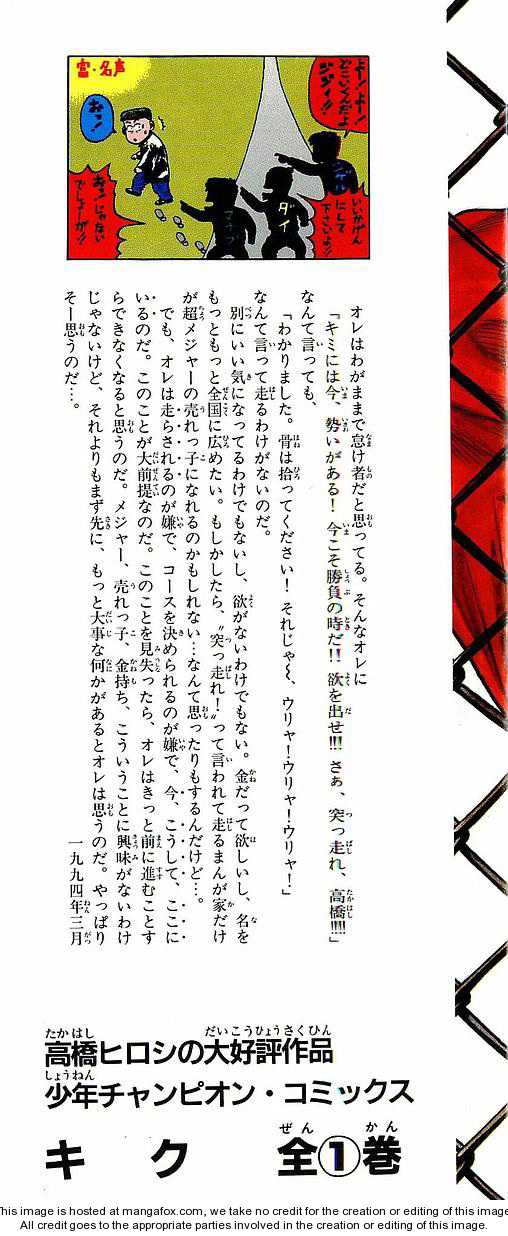 富・名声
よー!よー!
どこいくんだよ
ジジイ!!
おっ!
いいかげん
にして
下さいよ!!
ダイ
おっじゃない
でしょーが!!
オレはわがままで怠け者だと思ってる。そんなオレに
「キミには今、勢いがある! 今こそ勝負の時だ!! 欲を出せ!!! さぁ、突っ走れ、高橋!!!!」
なんて言っても、
「わかりました。骨は拾ってください! それじゃ〜、ウリャ!ウリャ!ウリャ!」
なんて言って走るわけがないのだ。
別にいい気になってるわけでもないし、欲がないわけでもない。金だって欲しいし、名を
もっともっと全国に広めたい。もしかしたら、〝突っ走れ!〟って言われて走るまんが家だけ
が超メジャーの売れっ子になれるのかもしれない…なんて思ったりもするんだけど…。
でも、オレは走らされるのが嫌で、コースを決められるのが嫌で、今、こうして、ここに
いるのだ。このことが大前提なのだ。このことを見失ったら、オレはきっと前に進むことす
らできなくなると思うのだ。メジャー、売れっ子、金持ち、こういうことに興味がないわけ
じゃないけど、それよりもまず先に、もっと大事な何かがあるとオレは思うのだ。やっぱり
そー思うのだ…。
一九九四年三月
高橋ヒロシの大好評作品
少年チャンピオン・コミックス
キク 全①巻
This image is hosted at mangafox.com, we take no credit for the creation or editing of this image.
All credit goes to the appropriate parties involved in the creation or editing of this image.